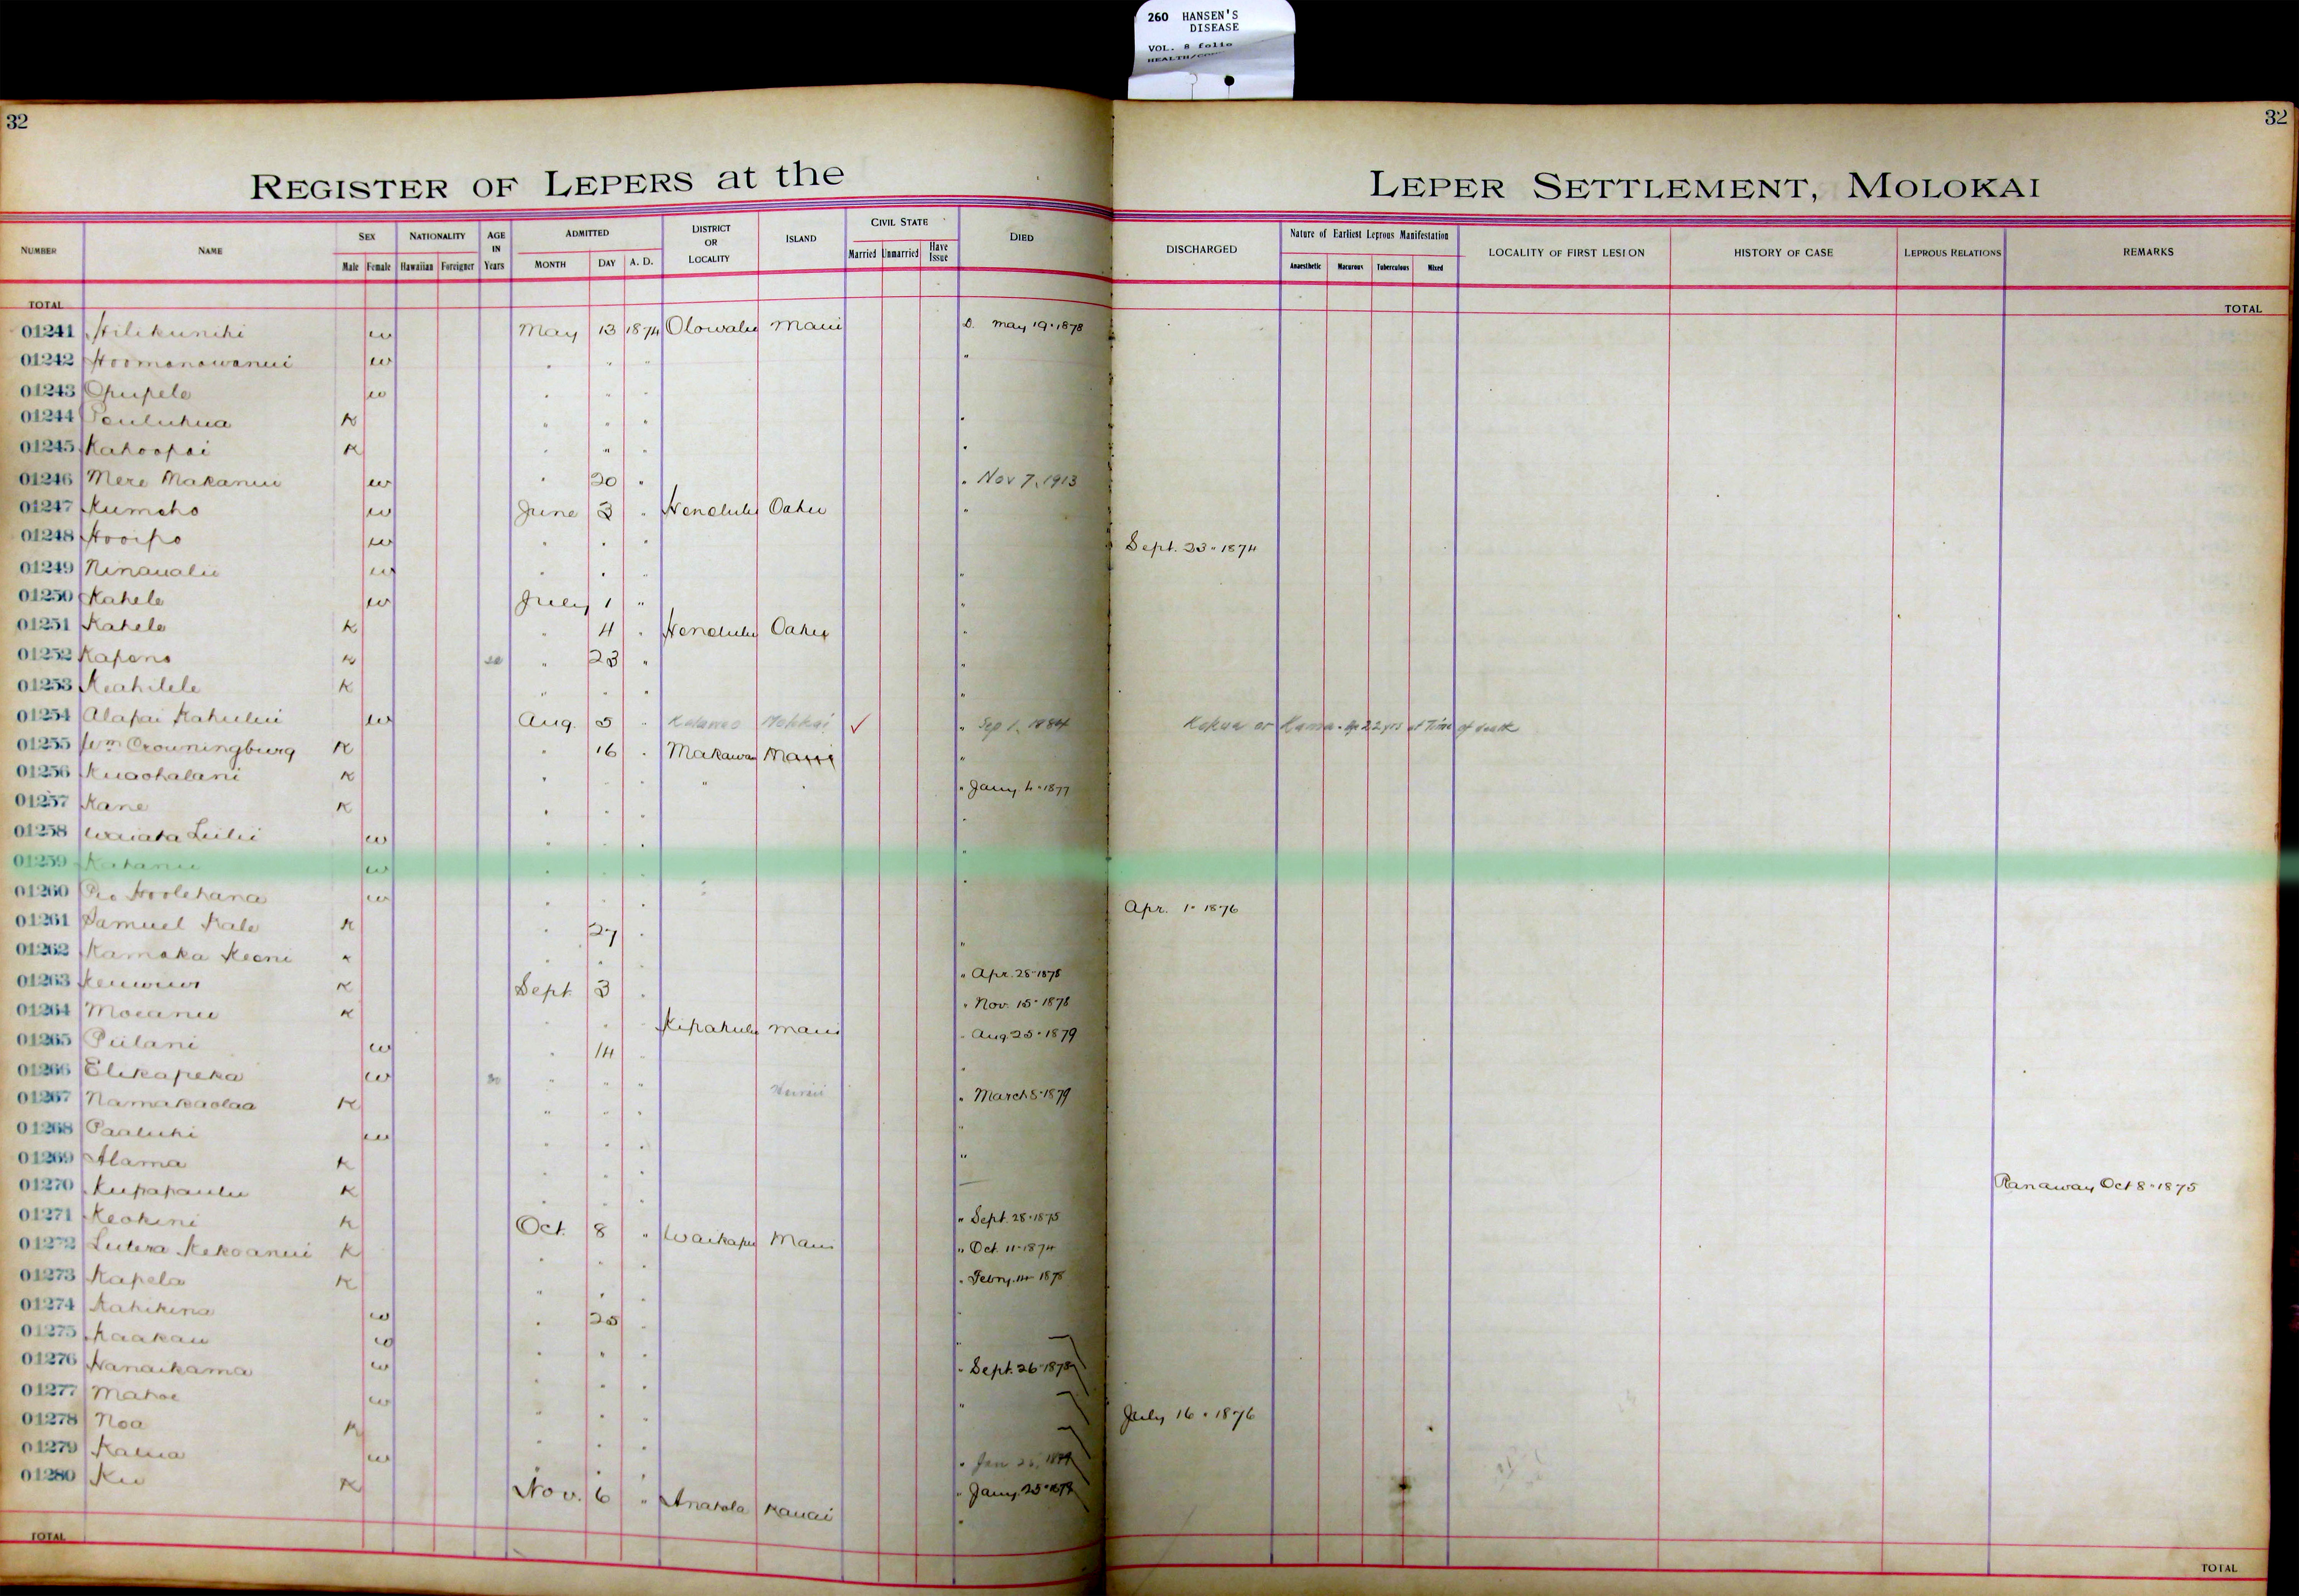 260 HANSEN'S
DISEASE
VOL. 8 folio
32
32
REGISTER OF LEPERS at the LEPER SETTLEMENT, MOLOKAI
NUMBER NAME SEX NATIONALITY AGE IN Years ADMITTED DISTRICT OR LOCALITY ISLAND CIVIL STATE DIED DISCHARGED Nature of Earliest Leprous Manifestation LOCALITY OF FIRST LESION HISTORY OF CASE LEPROUS RELATIONS REMARKS
Male Female Hawaiian Foreigner MONTH DAY A. D. Married Unmarried Have Issue Anaesthetic Macurous Tuberculous Mixed
TOTAL TOTAL
01241 Hilikunihi w May 13 1874 Olowalu Maui D. May 19 · 1878
01242 Hoomanawanui w " " " "
01243 Opupele w " " "
01244 K " " " "
01245 Kahoopai K " " " "
01246 Mere Makanui w " 20 " " Nov 7, 1913
01247 Kumeho w June 3 " Honolulu Oahu "
01248 Hooipo w " " " Sept. 23 · 1874
01249 Ninaualu w " " " "
01250 Kahele w July 1 " "
01251 Kahele K " 4 " Honolulu Oahu "
01252 Kapono K " 23 " "
01253 Keahilele K " " " "
01254 Alapai Kahului w Aug. 5 " Kalawao Molokai ✓ " Sep 1, 1884 Kokua or Kamaa. Age 22 yrs at Time of death
01255 Wm Crowningburg K " 16 " Makawao Maui "
01256 Kuaohalani K " " " " " " Jany. 4 · 1877
01257 Kane K " " " "
01258 Waiata Luilii w " " " "
01259 w " " " "
01260 Hoolehana w " " " Apr. 1 · 1876
01261 Samuel Kale K " 27 " "
01262 Kamaka Keoni K " " " " Apr. 28 · 1878
01263 K Sept. 3 " " Nov. 15 · 1878
01264 Moeanu K " " " Kipahulu Maui " Aug 25 · 1879
01265 Piilani w " 14 " "
01266 Elikapeka w 30 " " " Hawaii " March 5 · 1879
01267 Namakaolaa K " " " "
01268 Paaluhi w " " " "
01269 Alama K " " "
01270 Kupapaulu K " " " Ranaway Oct 8 · 1875
01271 Keokini K Oct. 8 " Waikapu Maui " Sept. 28 · 1875
01272 Lutera Kekoanui K " " " " Oct. 11 · 1874
01273 Kapela K " " " " Febry. 14 1878
01274 Kahikina w " 25 " "
01275 Kaakau w " " " "
01276 Nanaikama w " " " " Sept. 26 · 1878
01277 Mahoe w " " " "
01278 Noa K " " " July 16 · 1876
01279 Kalua w " " " " Jan
01280 Ku K Nov. 6 " Anahola Kauai " Jany. 25 ·
TOTAL TOTAL